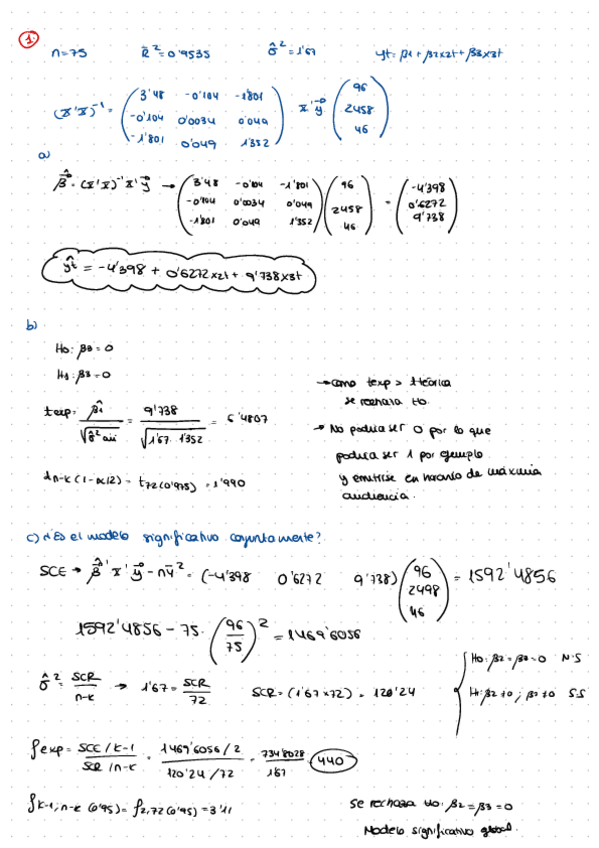 1.
n=75 R̄²=0'9535 σ̂²=1'67 yt=β1+β2x2t+β3x3t
(X'X)⁻¹= 3'48 -0'104 -1'801 X'y 96
-0'104 0'0034 0'049 2458
-1'801 0'049 1'352 46
a)
β̂=(X'X)⁻¹X'y → 3'48 -0'104 -1'801 96 = -4'398
-0'104 0'0034 0'049 2458 0'6272
-1'801 0'049 1'352 46 9'738
ŷt = -4'398 + 0'6272x2t + 9'738x3t
b)
H0: β3=0
H1: β3=0
texp= β̂i / √σ̂² aii = 9'738 / √1'67·1'352 = 6'4807
tn-k(1-α/2) = t72(0'975) = 1'990
→ como texp > t teórica
se rechaza H0.
→ No podría ser 0 por lo que
podría ser 1 por ejemplo
y emitirse en horario de máxima
audiencia.
c) ¿Es el modelo significativo conjuntamente?
SCE → β̂'X'y - nȳ² = (-4'398 0'6272 9'738) 96 = 1592'4856
2498
46
1592'4856 - 75·(96/75)² = 1469'6056
σ̂² = SCR/n-k → 1'67 = SCR/72 SCR = (1'67×72) = 120'24
H0: β2=β3=0 N·S
H1: β2≠0; β3≠0 S.S
fexp = SCE/k-1 / SCR/n-k = 1469'6056/2 / 120'24/72 = 734'8028 / 1'67 = 440
fk-1; n-k (0'95) = f2,72 (0'95) = 3'11
se rechaza H0: β2=β3=0
Modelo significativo global.